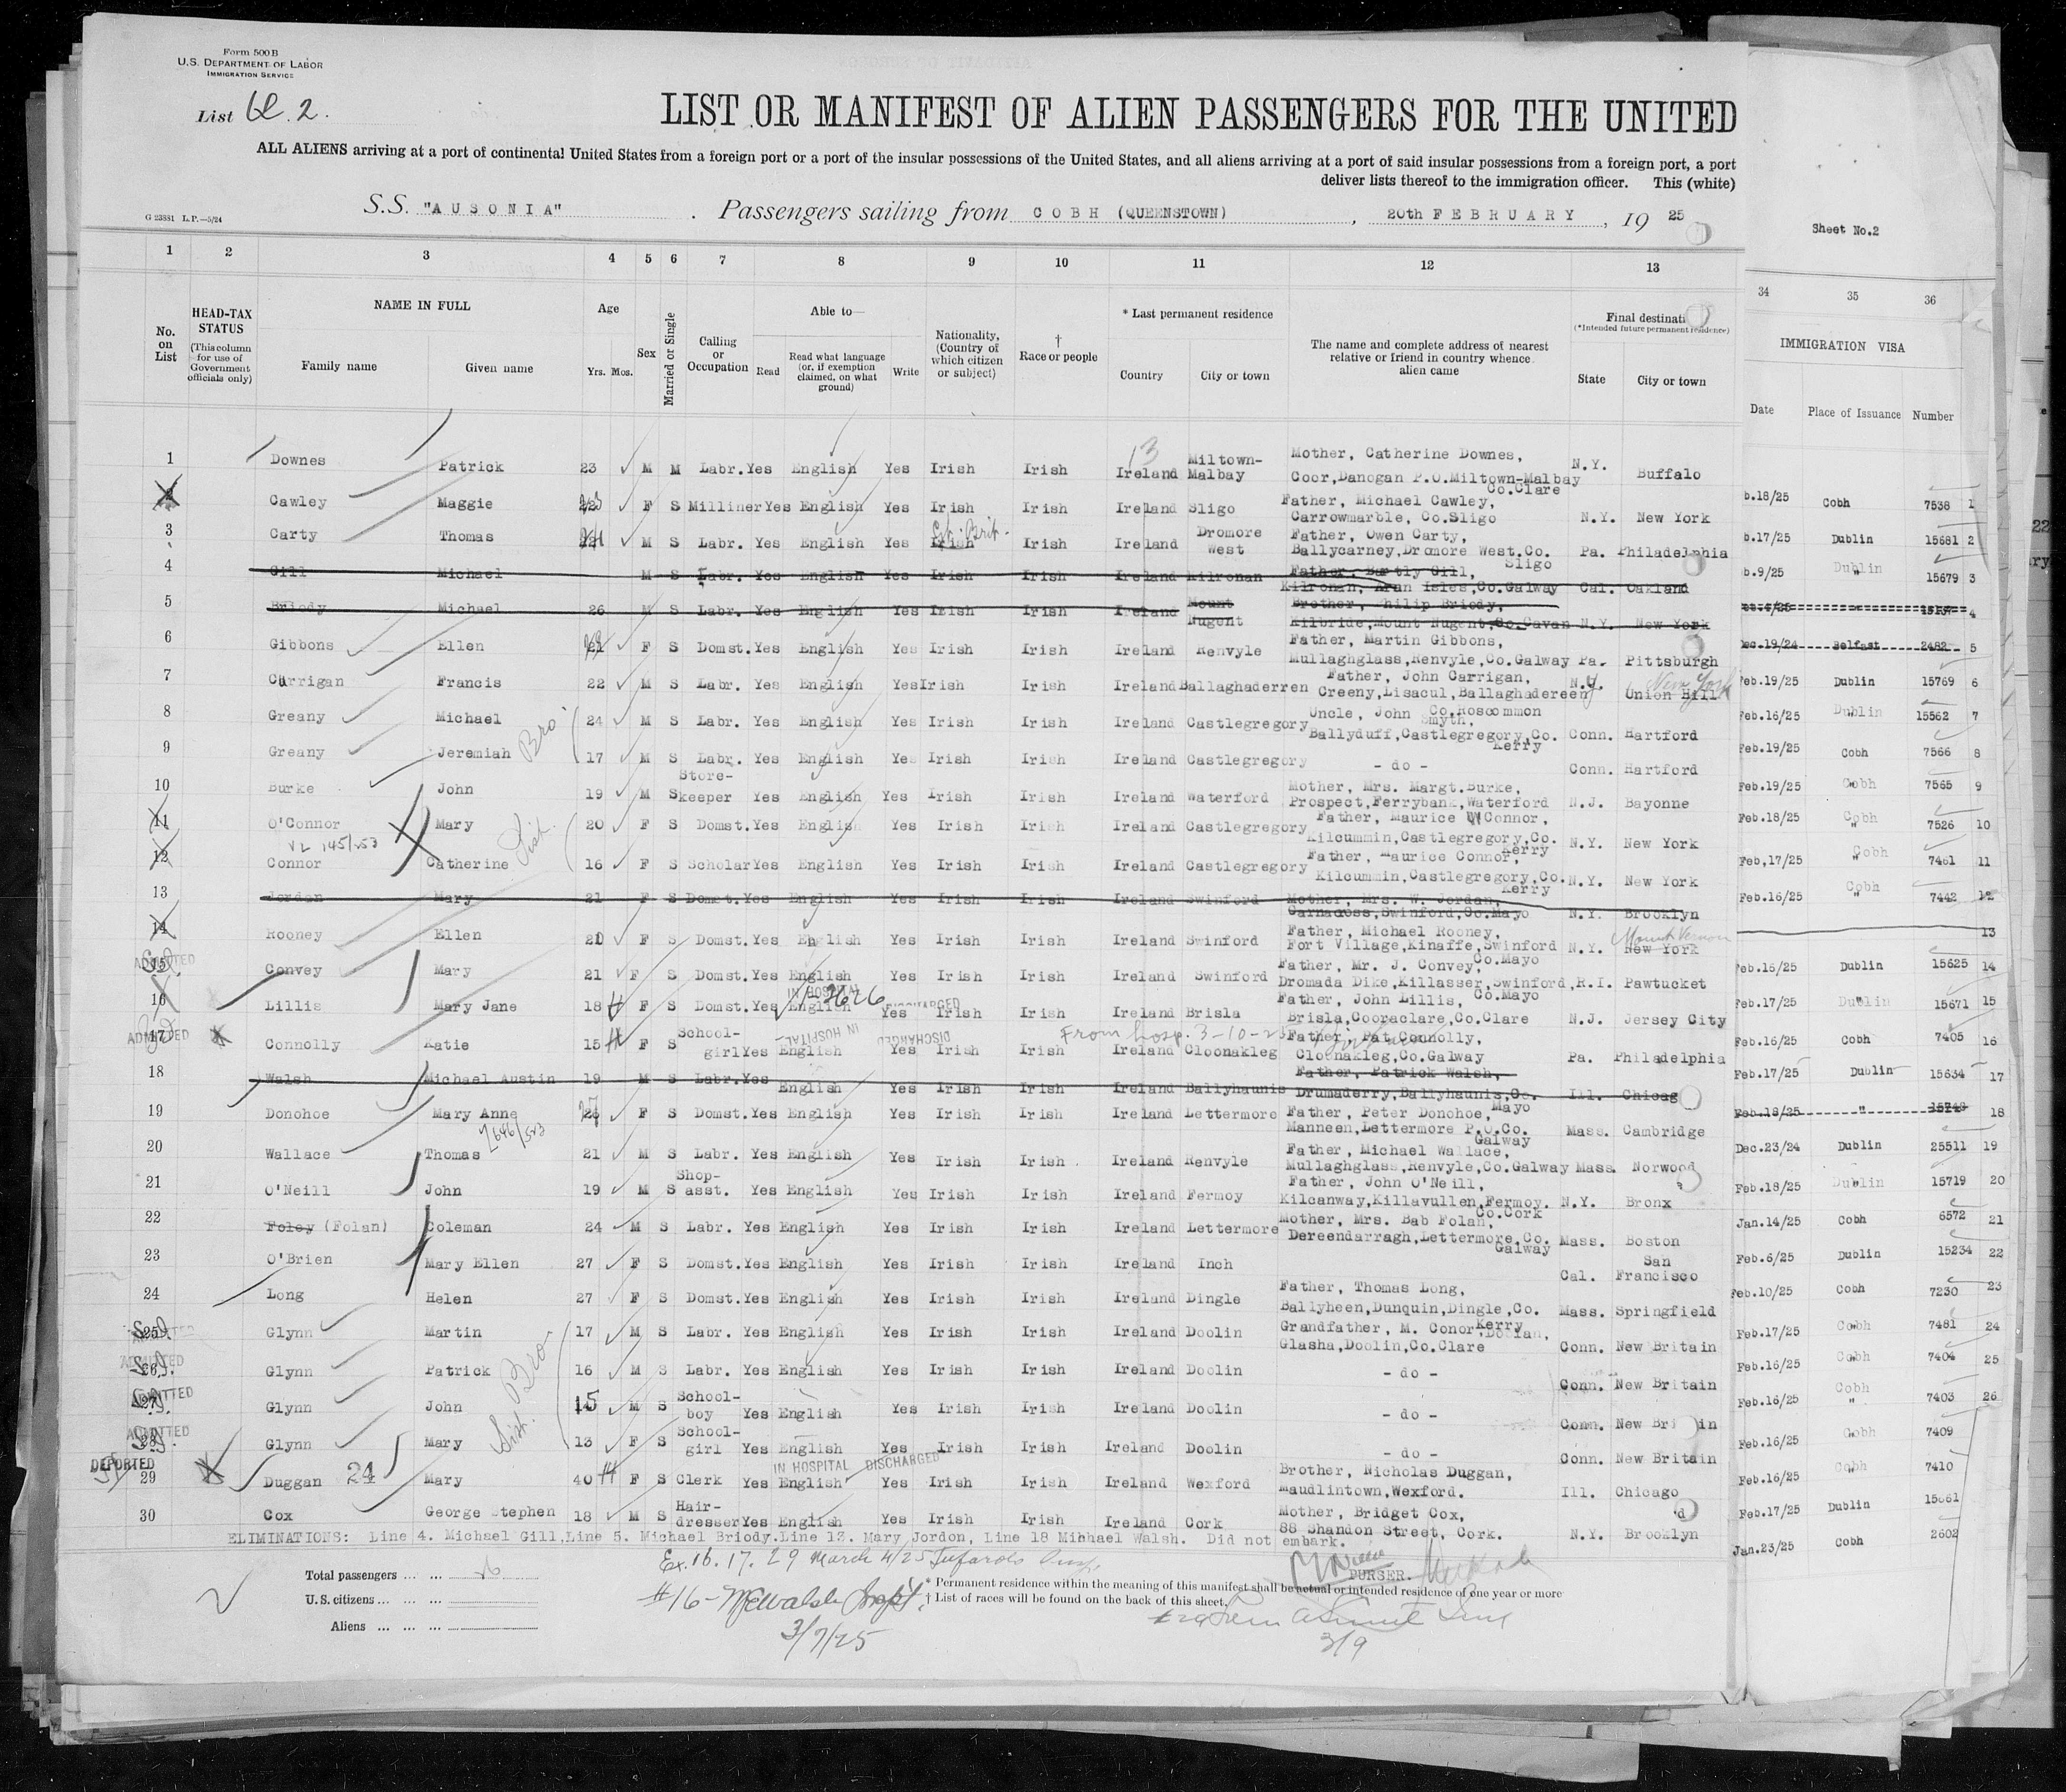 Form 500 B
U.S. DEPARTMENT OF LABOR
IMMIGRATION SERVICE
List 2.
LIST OR MANIFEST OF ALIEN PASSENGERS FOR THE UNITED
ALL ALIENS arriving at a port of continental United States from a foreign port or a port of the insular possessions of the United States, and all aliens arriving at a port of said insular possessions from a foreign port, a port
deliver lists thereof to the immigration officer. This (white)
G 23881 L.P.—5/24
S.S. "AUSONIA" . Passengers sailing from COBH (QUEENSTOWN) , 20th FEBRUARY , 19 25
Sheet No.2
1 2 3 4 5 6 7 8 9 10 11 12 13 34 35 36
No. on List
HEAD-TAX STATUS (This column for use of Government officials only)
NAME IN FULL
Family name Given name
Age Yrs. Mos.
Sex
Married or Single
Calling or Occupation
Able to—
Read
Read what language (or, if exemption claimed, on what ground)
Write
Nationality, (Country of which citizen or subject)
† Race or people
* Last permanent residence
Country City or town
The name and complete address of nearest relative or friend in country whence alien came
Final destinati
(*Intended future permanent residence)
State City or town
IMMIGRATION VISA
Date Place of Issuance Number
1 Downes Patrick 23 M M Labr. Yes English Yes Irish Irish Ireland Miltown-Malbay Mother, Catherine Downes, Coor,Danogan P.O.Miltown-Malbay Co.Clare N.Y. Buffalo
Cawley Maggie F S Milliner Yes English Yes Irish Irish Ireland Sligo Father, Michael Cawley, Carrowmarble, Co.Sligo N.Y. New York
3 Carty Thomas M S Labr. Yes English Yes Irish Irish Ireland Dromore West Father, Owen Carty, Ballycarney,Dromore West.Co. Sligo Pa. Philadelphia
4 Gill Michael M S Labr. Yes English Yes Irish Irish Ireland Kilronan Father, Bartly Gill, Kilronan, Aran Isles,Co.Galway Cal. Oakland
5 Briody Michael 26 M S Labr. Yes English Yes Irish Irish Ireland Mount Nugent Brother, Philip Briody, Kilbride,Mount Nugent,Co.Cavan N.Y. New York
6 Gibbons Ellen F S Domst. Yes English Yes Irish Irish Ireland Renvyle Father, Martin Gibbons, Mullaghglass,Renvyle,Co.Galway Pa. Pittsburgh
7 Carrigan Francis 22 M S Labr. Yes English Yes Irish Irish Ireland Ballaghaderren Father, John Carrigan, Creeny,Lisacul,Ballaghadereen Co.Roscommon N.Y. Union Hill New York
8 Greany Michael 24 M S Labr. Yes English Yes Irish Irish Ireland Castlegregory Uncle, John Smyth, Ballyduff,Castlegregory,Co. Kerry Conn. Hartford
9 Greany Jeremiah Bro. 17 M S Labr. Yes English Yes Irish Irish Ireland Castlegregory - do - Conn. Hartford
10 Burke John 19 M S Store-keeper Yes English Yes Irish Irish Ireland Waterford Mother, Mrs. Margt.Burke, Prospect,Ferrybank,Waterford N.J. Bayonne
11 O'Connor Mary 20 F S Domst. Yes English Yes Irish Irish Ireland Castlegregory Father, Maurice Connor, Kilcummin,Castlegregory,Co. Kerry N.Y. New York
12 Connor Catherine Sist. 16 F S Scholar Yes English Yes Irish Irish Ireland Castlegregory Father, Maurice Connor, Kilcummin,Castlegregory,Co. Kerry N.Y. New York
13 Jordan Mary 21 F S Domst. Yes English Yes Irish Irish Ireland Swinford Mother, Mrs. W. Jordan, Carnacoss,Swinford,Co.Mayo N.Y. Brooklyn
14 Rooney Ellen F S Domst. Yes English Yes Irish Irish Ireland Swinford Father, Michael Rooney, Fort Village,Kinaffe,Swinford Co.Mayo N.Y. New York Mount Vernon
15 ADMITTED Convey Mary 21 F S Domst. Yes English Yes Irish Irish Ireland Swinford Father, Mr. J. Convey, Dromada Dike,Killasser,Swinford, Co.Mayo R.I. Pawtucket
16 Lillis Mary Jane 18 F S Domst. Yes English Yes Irish Irish Ireland Brisla Father, John Lillis, Brisla,Cooraclare,Co.Clare N.J. Jersey City
IN HOSPITAL DISCHARGED
17 ADMITTED Connolly Katie 15 F S School-girl Yes English Yes Irish Irish Ireland Cloonakleg Father, Pat Connolly, Cloonakleg,Co.Galway Pa. Philadelphia
IN HOSPITAL DISCHARGED From hosp. 3-10-25
18 Walsh Michael Austin 19 M S Labr. Yes English Yes Irish Irish Ireland Ballyhaunis Father, Patrick Walsh, Drumaderry,Ballyhaunis,Co. Mayo Ill. Chicag
19 Donohoe Mary Anne F S Domst. Yes English Yes Irish Irish Ireland Lettermore Father, Peter Donohoe, Manneen,Lettermore P.O.Co. Galway Mass. Cambridge
20 Wallace Thomas 21 M S Labr. Yes English Yes Irish Irish Ireland Renvyle Father, Michael Wallace, Mullaghglass,Renvyle,Co.Galway Mass. Norwood
21 O'Neill John 19 M S Shop-asst. Yes English Yes Irish Irish Ireland Fermoy Father, John O'Neill, Kilcanway,Killavullen,Fermoy. Co.Cork N.Y. Bronx
22 Foley (Folan) Coleman 24 M S Labr. Yes English Yes Irish Irish Ireland Lettermore Mother, Mrs. Bab Folan, Dereendarragh,Lettermore,Co. Galway Mass. Boston
23 O'Brien Mary Ellen 27 F S Domst. Yes English Yes Irish Irish Ireland Inch Cal. San Francisco
24 Long Helen 27 F S Domst. Yes English Yes Irish Irish Ireland Dingle Father, Thomas Long, Ballyheen,Dunquin,Dingle,Co. Kerry Mass. Springfield
25 ADMITTED Glynn Martin 17 M S Labr. Yes English Yes Irish Irish Ireland Doolin Grandfather, M. Conor, Glasha,Doolin,Co.Clare Conn. New Britain
26 ADMITTED Glynn Patrick Bro. 16 M S Labr. Yes English Yes Irish Irish Ireland Doolin - do - Conn. New Britain
27 ADMITTED Glynn John 15 M S School-boy Yes English Yes Irish Irish Ireland Doolin - do - Conn. New Bri in
28 ADMITTED Glynn Mary Sist. 13 F S School-girl Yes English Yes Irish Irish Ireland Doolin - do - Conn. New Britain
DEPORTED 29 Duggan 24 Mary 40 F S Clerk Yes English Yes Irish Irish Ireland Wexford Brother, Nicholas Duggan, Maudlintown,Wexford. Ill. Chicago
IN HOSPITAL DISCHARGED
30 Cox George Stephen 18 M S Hair-dresser Yes English Yes Irish Irish Ireland Cork Mother, Bridget Cox, 88 Shandon Street, Cork. N.Y. Brooklyn
b.18/25 Cobh 7538 1
b.17/25 Dublin 15681 2
b.9/25 Dublin " 15679 3
4
Dec.19/24 Belfast 2482 5
Feb.19/25 Dublin 15769 6
Feb.16/25 Dublin 15562 7
Feb.19/25 Cobh 7566 8
Feb.19/25 Cobh 7565 9
Feb.18/25 Cobh " 7526 10
Feb,17/25 Cobh " 7461 11
Feb.16/25 Cobh " 7442 12
13
Feb.16/25 Dublin 15625 14
Feb.17/25 Dublin 15671 15
Feb.16/25 Cobh 7405 16
Feb.17/25 Dublin 15634 17
Feb.18/25 " 18
Dec.23/24 Dublin 25511 19
Feb.18/25 Dublin 15719 20
Jan.14/25 Cobh 6572 21
Feb.6/25 Dublin 15234 22
Feb.10/25 Cobh 7230 23
Feb.17/25 Cobh 7481 24
Feb.16/25 Cobh 7404 25
Feb.16/25 Cobh " 7403 26
Feb.16/25 Cobh 7409
Feb.16/25 Cobh 7410
Feb.17/25 Dublin
Jan.23/25 Cobh 2602
ELIMINATIONS: Line 4. Michael Gill,Line 5. Michael Briody.Line 13. Mary Jordon, Line 18 Michael Walsh. Did not embark.
Ex. 16. 17. 29 March 4/25
Total passengers ... ... 26
U.S. citizens ... ...
Aliens ... ... ...
PURSER.
* Permanent residence within the meaning of this manifest shall be actual or intended residence of one year or more
† List of races will be found on the back of this sheet.
#16 - 3/7/25
3/9